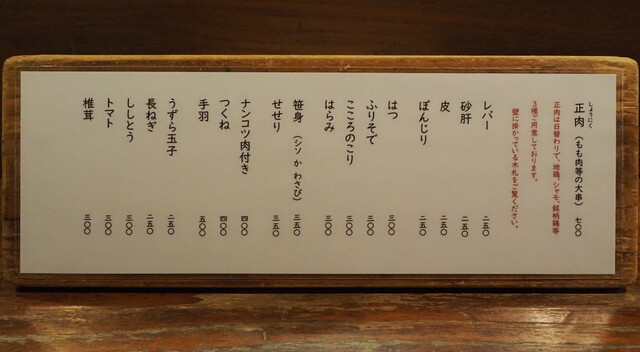 しょうにく
正肉（もも肉等の大串）　七〇〇
正肉は日替わりで、地鶏、シャモ、銘柄鶏等
３種ご用意しております。
壁に掛かっている木札をご覧ください。
レバー　二五〇
砂肝　二五〇
皮　二五〇
ぼんじり　二五〇
はつ　三〇〇
ふりそで　三〇〇
こころのこり　三〇〇
はらみ　三〇〇
笹身（シソ か わさび）　三五〇
せせり　三五〇
ナンコツ肉付き　四〇〇
つくね　四〇〇
手羽　五〇〇
うずら玉子　二五〇
長ねぎ　二五〇
ししとう　三〇〇
トマト　三〇〇
椎茸　三〇〇